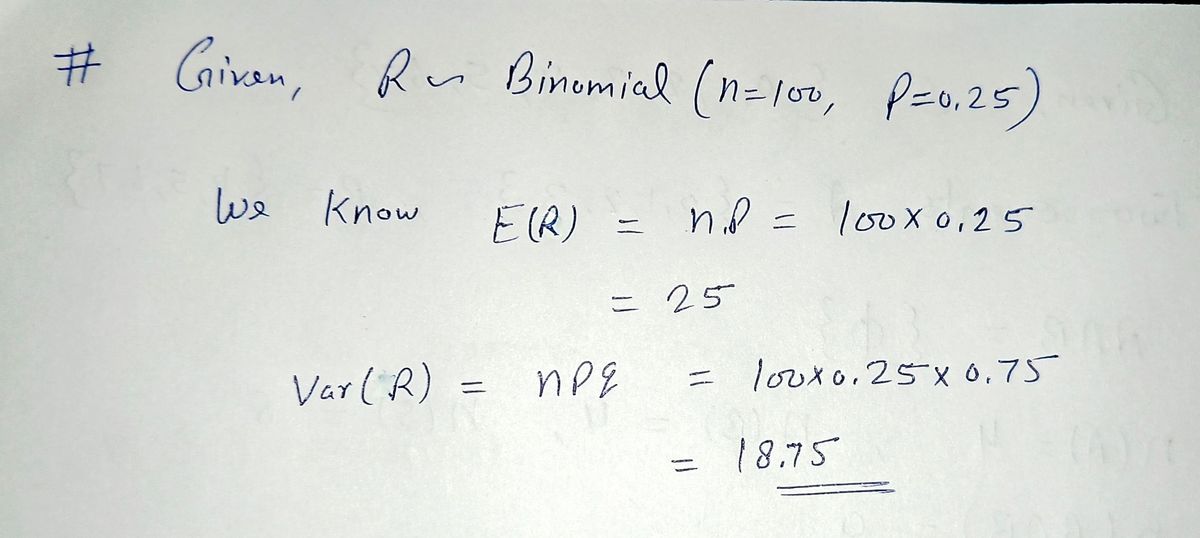 # Given, R ~ Binomial (n=100, P=0.25)
We Know E(R) = n.P = 100 x 0.25
= 25
Var(R) = npq = 100x0.25 x 0.75
= 18.75